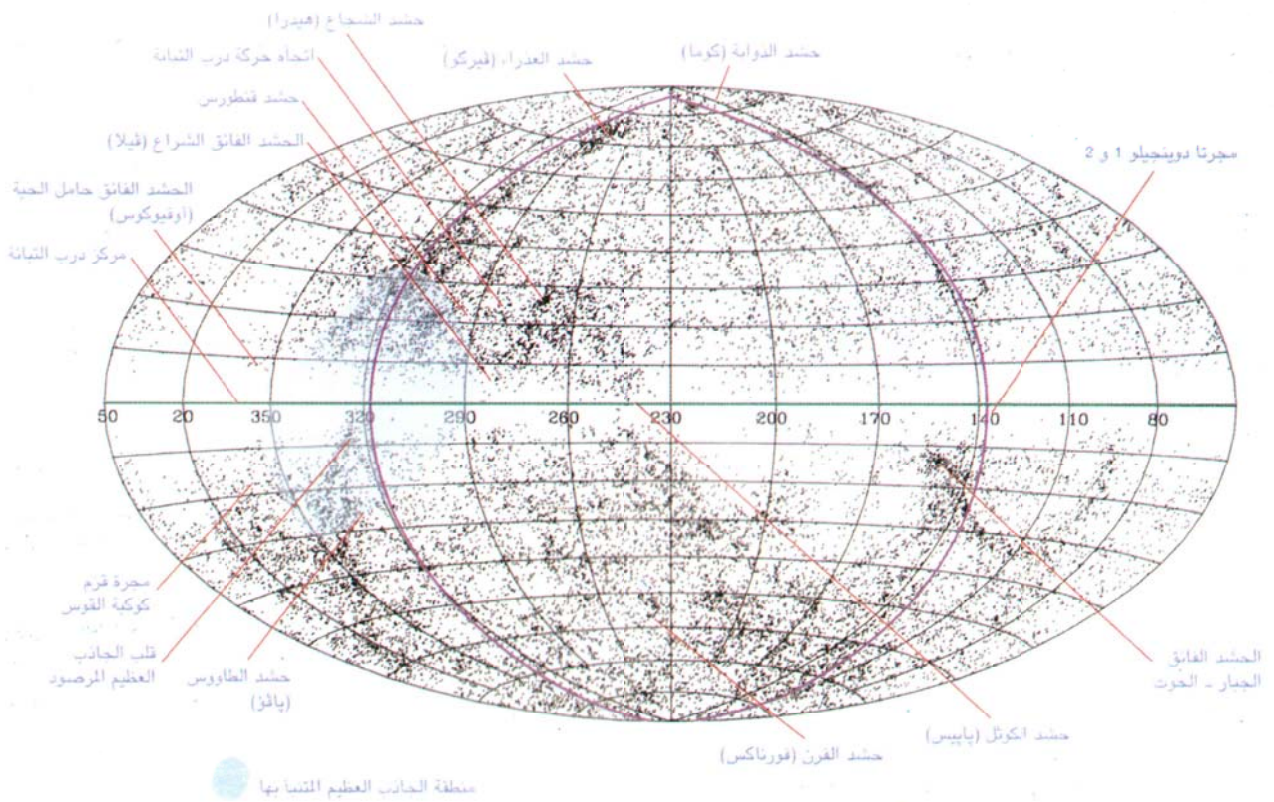 حشد الشجاع (هيدرا)
اتجاه حركة درب التبانة
حشد قنطورس
الحشد الفائق الشراع (ڤيلا)
الحشد الفائق حامل الحية
(أوفيوكوس)
مركز درب التبانة
حشد العذراء (ڤيرگو)
حشد الدوابة (كوما)
مجرتا دوينجيلو 1 و 2
50 20 350 320 290 260 230 200 170 140 110 80
مجرة قزم
كوكبة القوس
قلب الجاذب
العظيم المرصود
حشد الطاووس
(پاڤو)
الحشد الفائق
الجبار - الحوت
حشد الكوثل (پاپيس)
حشد الفرن (فورناكس)
منطقة الجاذب العظيم المتنبأ بها